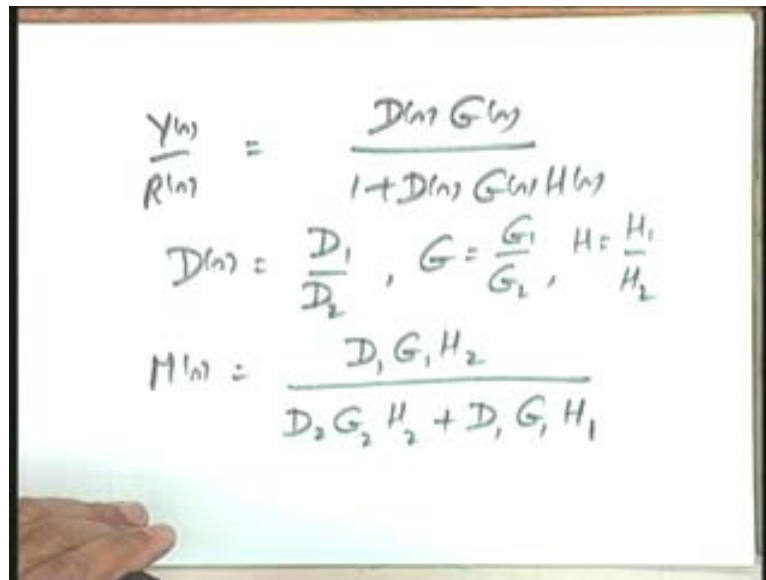 Y(s)/R(s) = D(s) G(s) / 1 + D(s) G(s) H(s)
D(s) = D₁/D₂ , G = G₁/G₂ , H = H₁/H₂
M(s) = D₁ G₁ H₂ / D₂ G₂ H₂ + D₁ G₁ H₁